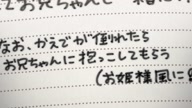 てお兄ちゃんと
なお、かえでが倒れたら
お兄ちゃんに抱っこしてもらう
(お姫様風に